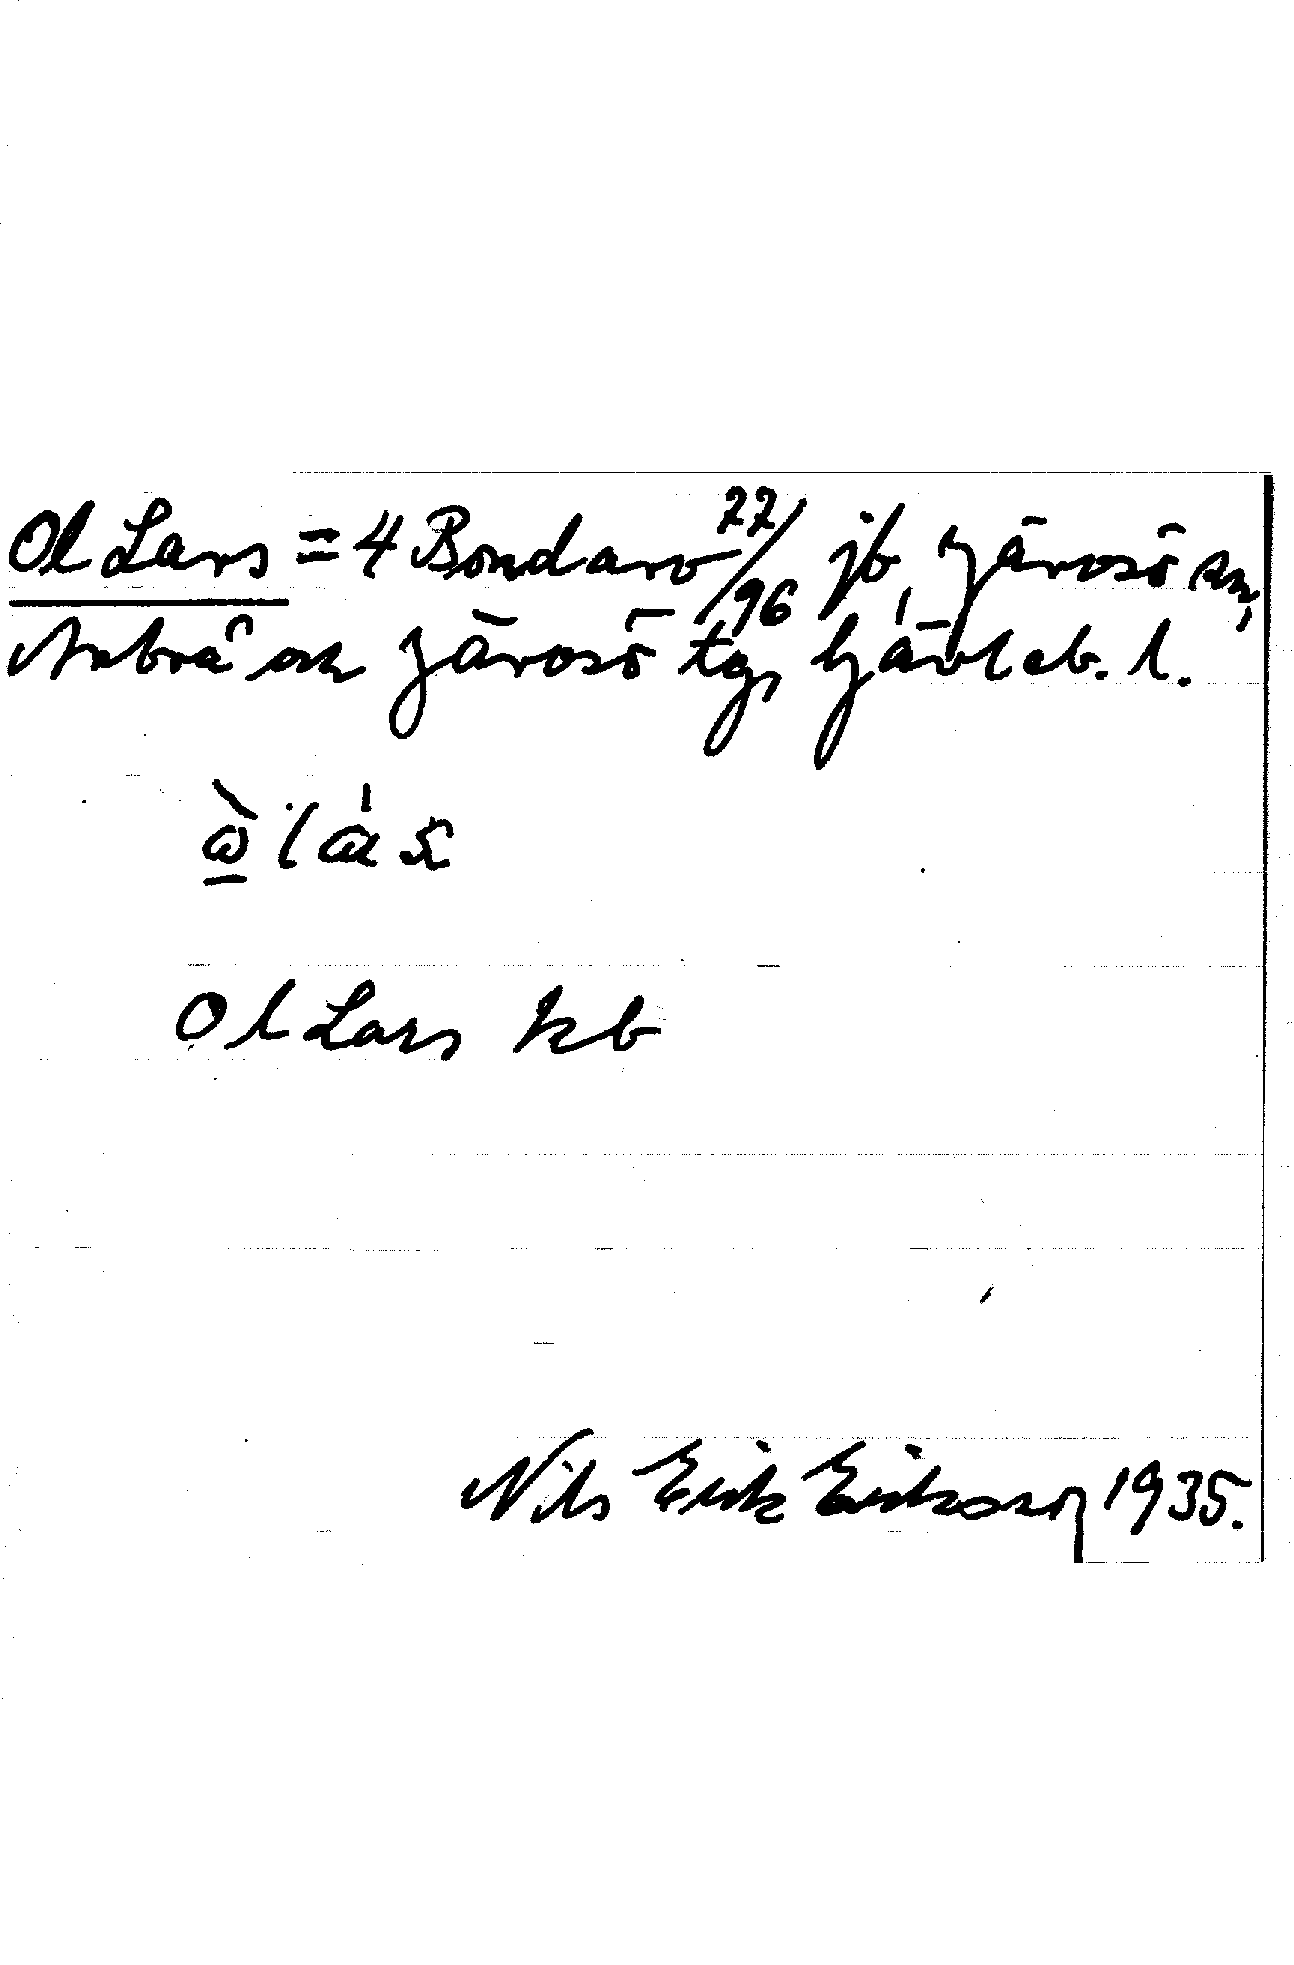 Ol Lars = 4 Bondarv 77/96 jb, Järvsö sn,
Arbrå och Järvsö tg, Gävleb. l.
Ol Lars kb
Nils Erik Eriksson 1935.